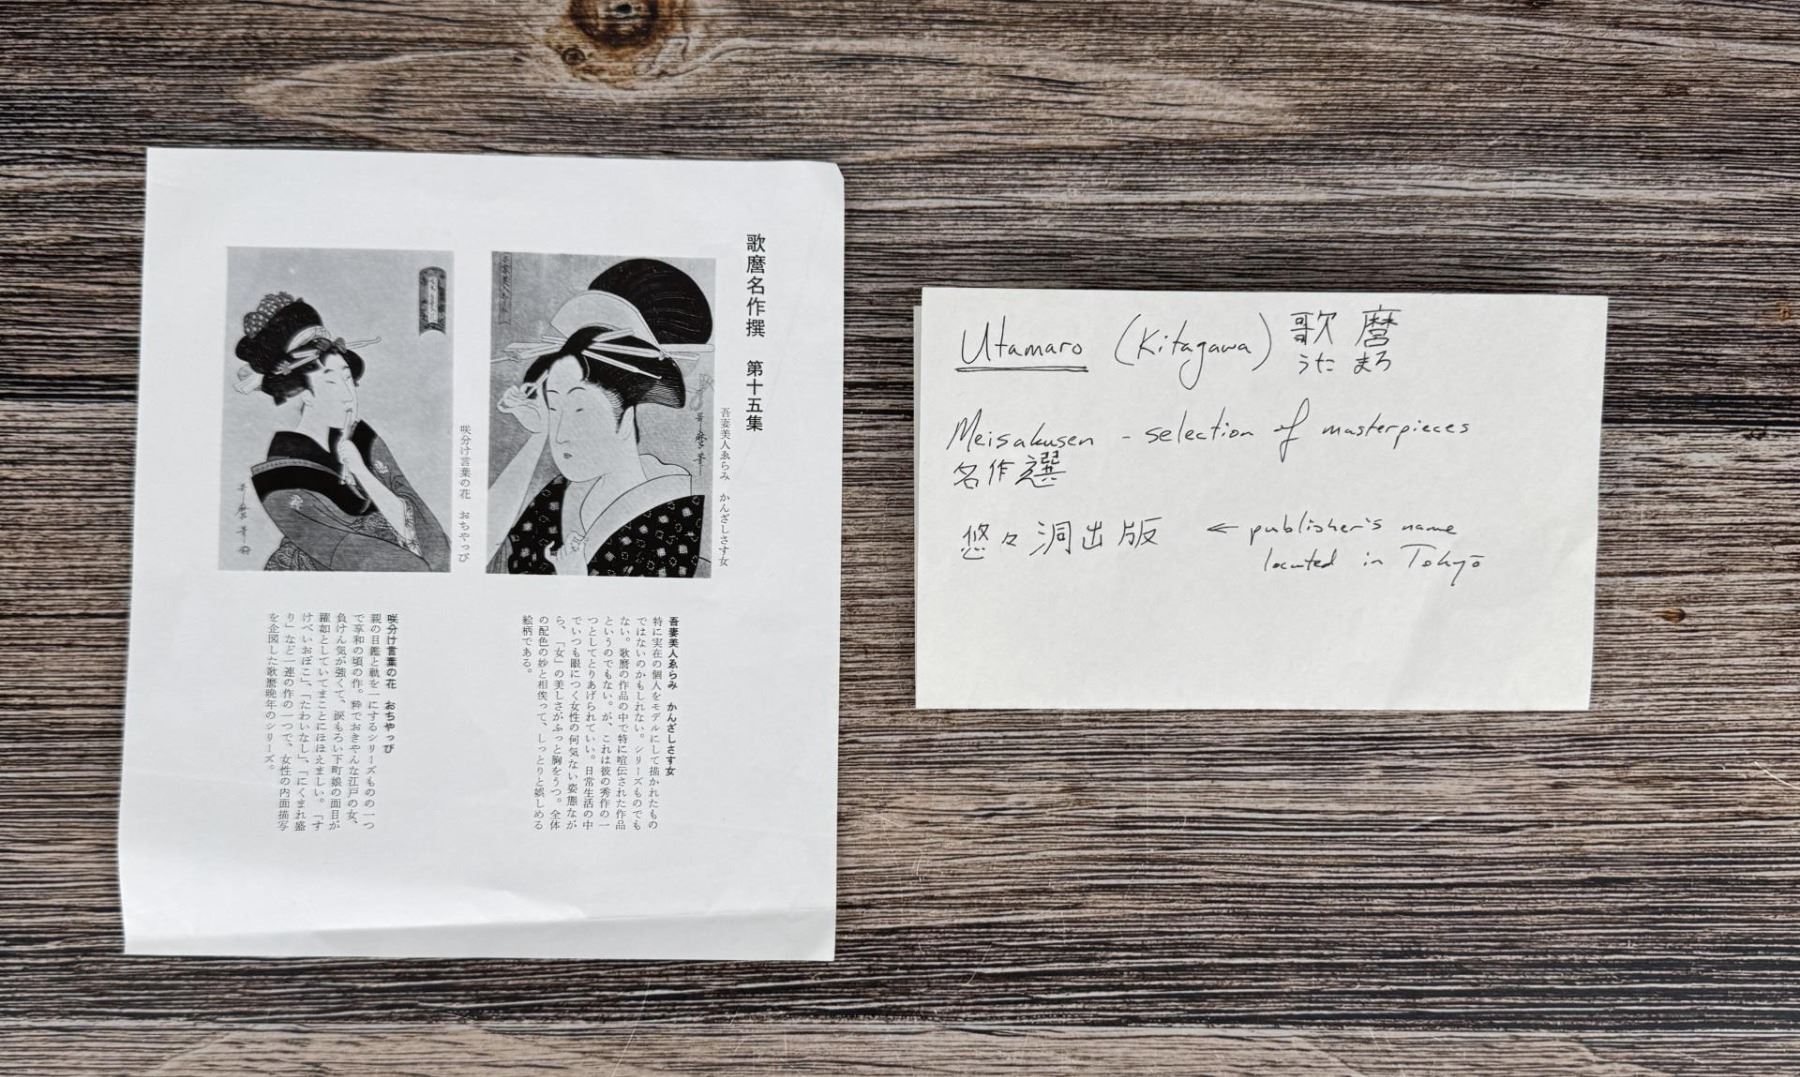 歌麿名作撰　第十五集
吾妻美人ゑらみ　かんざしさす女
哥麿筆
咲分け言葉の花　おちやっぴ
哥麿筆
吾妻美人ゑらみ　かんざしさす女
特に実在の個人をモデルにして描かれたもの
ではないのかもしれない。シリーズものでも
ない。歌麿の作品の中で特に喧伝された作品
というのでもない。が、これは彼の秀作の一
つとしてとりあげられていい。日常生活の中
でいつも眼につく女性の何気ない姿態なが
ら、「女」の美しさがふっと胸をうつ。全体
の配色の妙と相俟って、しっとりと娯しめる
絵柄である。
咲分け言葉の花　おちやっぴ
親の目鑑と軌を一にするシリーズものの一つ
で享和の頃の作。粋でおきやんな江戸の女、
負けん気が強くて、涙もろい下町娘の面目が
躍如としていてまことにほほえましい。「す
けべいおぼこ」、「たわいなし」、「にくまれ盛
り」など一連の作の一つで、女性の内面描写
を企図した歌麿晩年のシリーズ。
Utamaro (Kitagawa) 歌麿
うた まろ
Meisakusen - selection of masterpieces
名作選
悠々洞出版 ← publisher's name
located in Tokyō